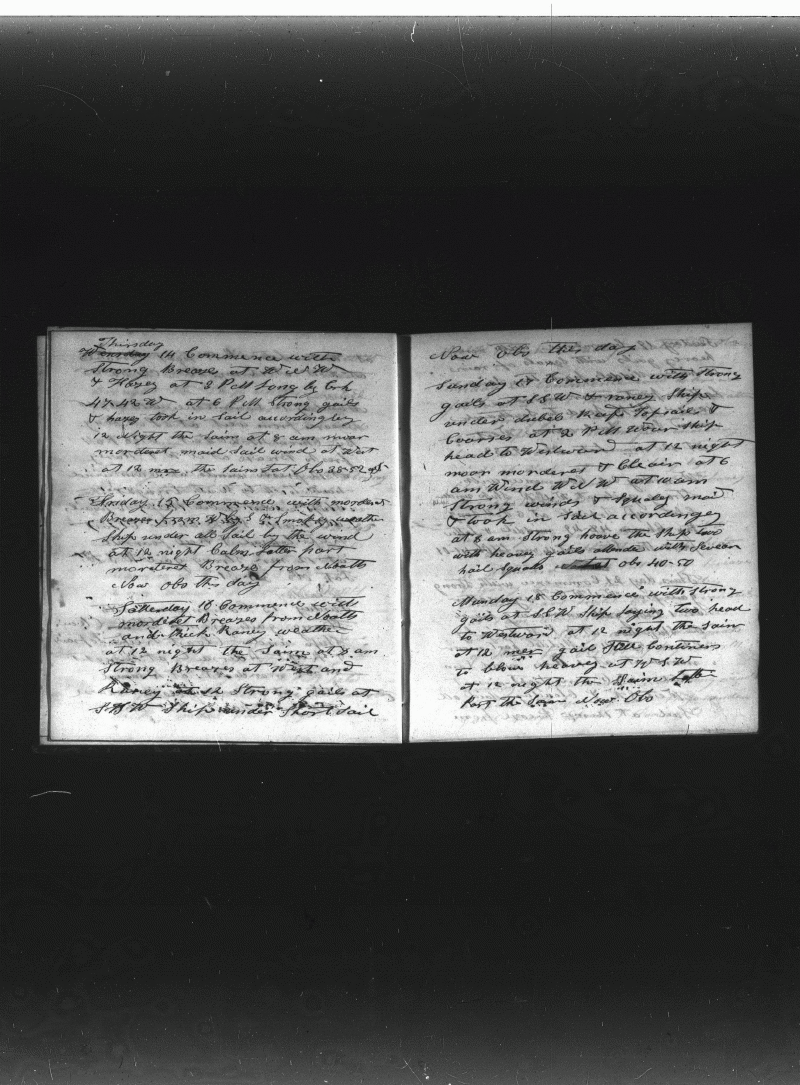 Thursday
Wensday 14 Commence with
Strong Breaze at W N W
& Hazey at 3 P M Long by Crh
47-42 W at 6 P M Strong gails
& hazey took in Sail accordingley
12 Night the Saim at 8 am moar
morderet maid Sail wind at West
at 12 mre the Saim Lat Obs 38-52
Friday 15 Commence with morderet
Breazes from W by S Smokey weather
Ship under all Sail by the wind
at 12 night Calm Latter part
morderet Breaze from
Now Obs this day
Saterday 16 Commence with
mordert Breazes from
and thick Raney weather
at 12 night the Saim at 8 am
Strong Breazes at West and
Raney at 12 Strong gails at
S S W Ship under Short Sail
Now Obs this day
Sunday 17 Commence with Strong
gails at S S W & raney Ship
under dubel Reaft Topsails &
Courses at 2 P M Woar Ship
head to Westward at 12 night
moar morderet & Cleair at 6
am Wind W N W at 10 am
Strong winds & Squaley
& took in Sail accordingey
at 8 am Strong hoove the Ship two
with heavey gails atende with Sevear
hail Squals Lat obs 40-50
Munday 18 Commence with Strong
gails at S S W Ship laying two head
to Westward at 12 night the Saim
at 12 mer gail Still Contineus
to blow heavey at W S W
at 12 night the Saim Latter
Part the Saim Now Obs